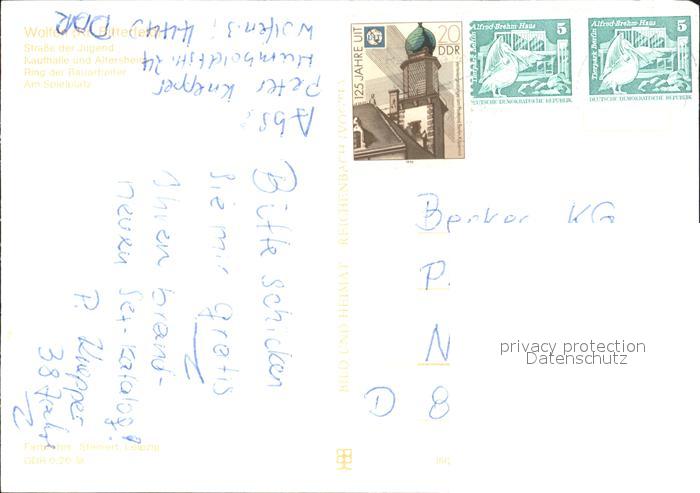 Wolfen Kr. Bitterfeld
Straße der Jugend
Kaufhalle und Altersheim
Ring der Bauarbeiter
Am Spielplatz
Abs:
Peter Knepper
Humboldtstr. 24
Wolfen 3, 4440
DDR
Bitte schicken
Sie mir gratis
Ihren brand-
neuen Sex-Katalog!
P. Knepper
38 Jahre
BILD UND HEIMAT REICHENBACH (VOGTL)
125 JAHRE UIT
20
DDR
Alfred-Brehm-Haus
Tierpark Berlin
5
DEUTSCHE DEMOKRATISCHE REPUBLIK
Alfred-Brehm-Haus
Tierpark Berlin
5
DEUTSCHE DEMOKRATISCHE REPUBLIK
KG
P.
N
D 8
privacy protection
Datenschutz
Leipzig
DDR 0,20 M